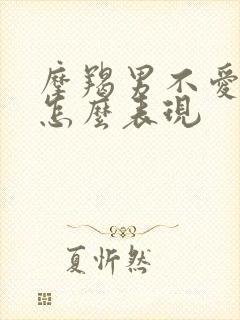 摩羯男不愛
怎麼表現
夏忻然